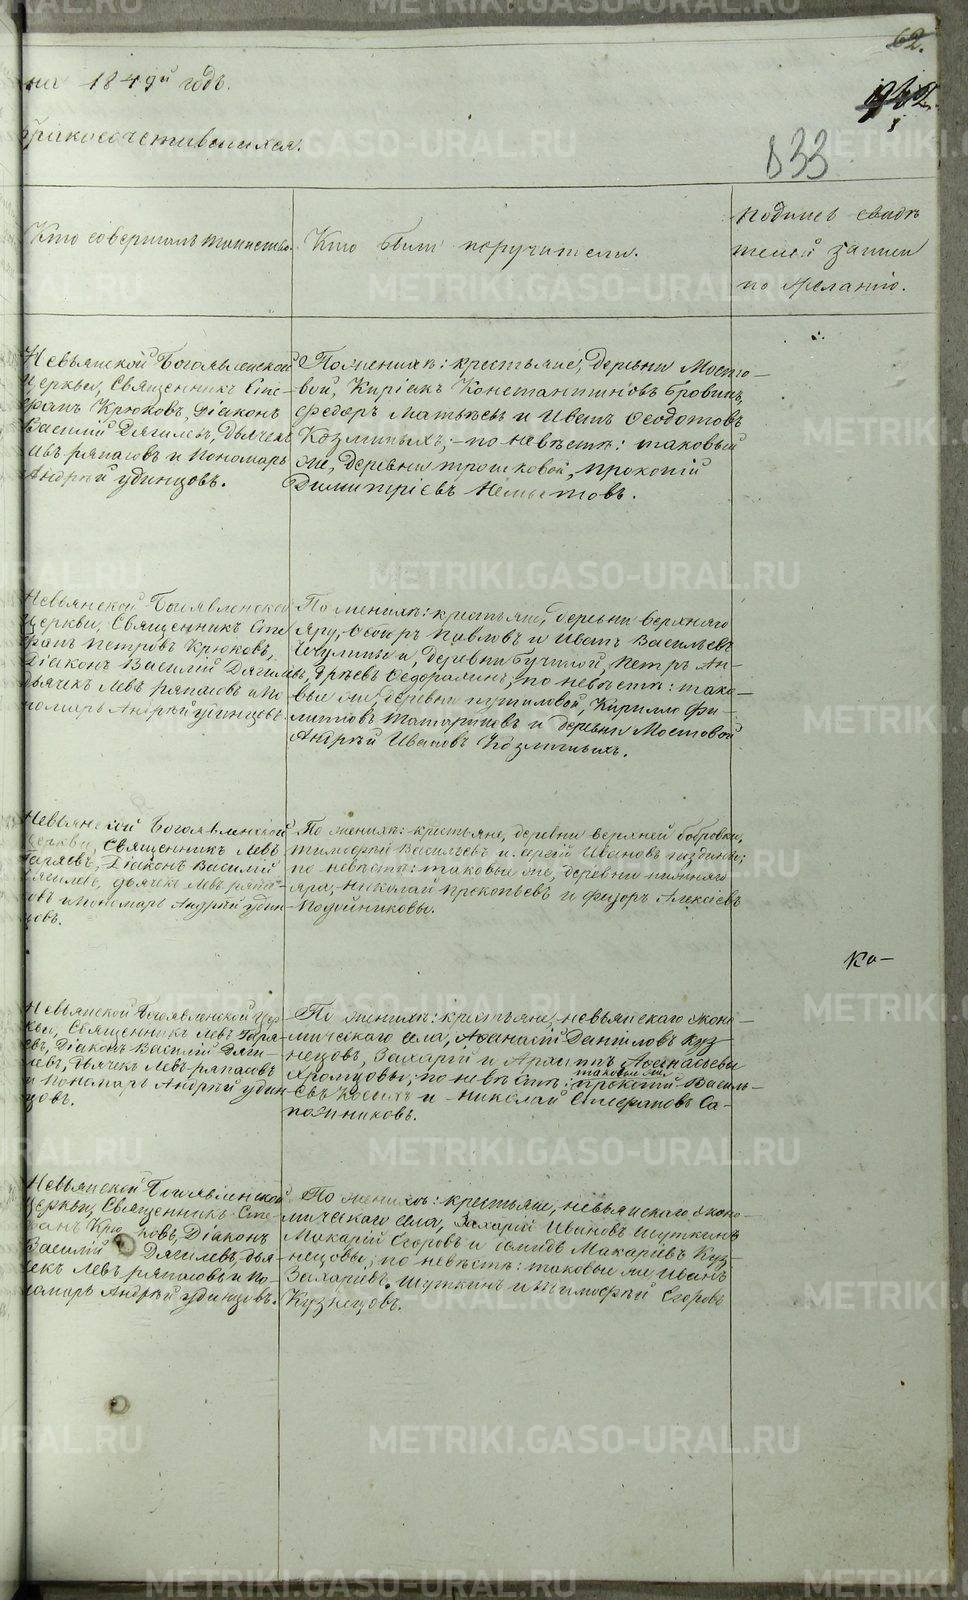 62.
на 1849й годъ.
бракосочетавшихся.
833
Кто совершалъ таинство.
Кто были поручители.
подпись свидѣ
телей записи
по желанію.
Невьянской Богоявленской
церкви, Священникъ Сте-
фанъ Крюковъ, діаконъ
Василій Дягилевъ, Дьячекъ
Левъ ряпасовъ и Пономарь
Андрей удинцовъ.
По женихѣ: крестьяне, деревни Мосто-
вой, Киріакъ Константиновъ Бровинъ,
Федоръ Матвѣевъ и Иванъ Ѳеодотовъ
Козминыхъ, по невѣстѣ: таковый
же, деревни трошковой, прокопій
Димитріевъ Немытовъ.
Невьянской Богоявленской
Церкви, Священникъ Сте
фанъ Петровъ Крюковъ,
Діаконъ Василій Дягилевъ,
дьячекъ Левъ ряпасовъ и По
номарь Андрей удинцовъ.
По женихѣ: крестьяне, деревни верхняго
Яру, Ѳедоръ Павловъ и Иванъ Васильевъ
деревни Петръ Ан-
дрѣевъ по невѣстѣ: тако-
вые же, деревни путиловой, Кирилло Фи-
липповъ Татариновъ и деревни Мостовой
Андрѣй Ивановъ Козминыхъ.
Невьянской Богоявленской
Церкви, Священникъ Левъ
Гаряевъ, Діаконъ Василій
Дягилевъ, дьячекъ Левъ ряпас-
овъ и Пономарь Андрѣй удин-
цовъ.
По женихѣ: крестьяне, деревни верхней бобровки,
тимофей Васильевъ и Ивановъ
по невѣстѣ: таковые же, деревни нижняго
яра, Николай Прокопьевъ и федоръ Алексіевъ
Подойниковы.
Ко-
Невьянской Богоявленской Цер
кви, Священникъ Левъ Гаря
евъ, Діаконъ Василій Дяги-
левъ, Дьячекъ Левъ ряпасовъ
и Пономарь Андрѣй удин
цовъ.
По женихѣ: крестьяне, невьянскаго эконо-
мическаго села, Аѳанасій Даниловъ Куз-
нецовъ, Захарій и Архиппъ Аѳанасьевы
таковые же
Хромцовы; по невѣстѣ: прокопій Василь-
евъ и Николай Сa-
пожниковъ.
Невьянской Богоявленской
Церкви, Священникъ Сте-
фанъ Крюковъ, Діаконъ
Василій Дягилевъ, дья-
чекъ Левъ ряпасовъ и По-
номарь Андрѣй удинцовъ.
По женихѣ: крестьяне, невьянскаго эконо-
мическаго села, Захарій Ивановъ Шуткинъ
Макарій Егоровъ и Макаріевъ Куз-
нецовы; по невѣстѣ: таковые же Иванъ
Захаріевъ Шуткинъ и Тимофѣй Егоровъ
Кузнецовъ.
METRIKI.GASO-URAL.RU